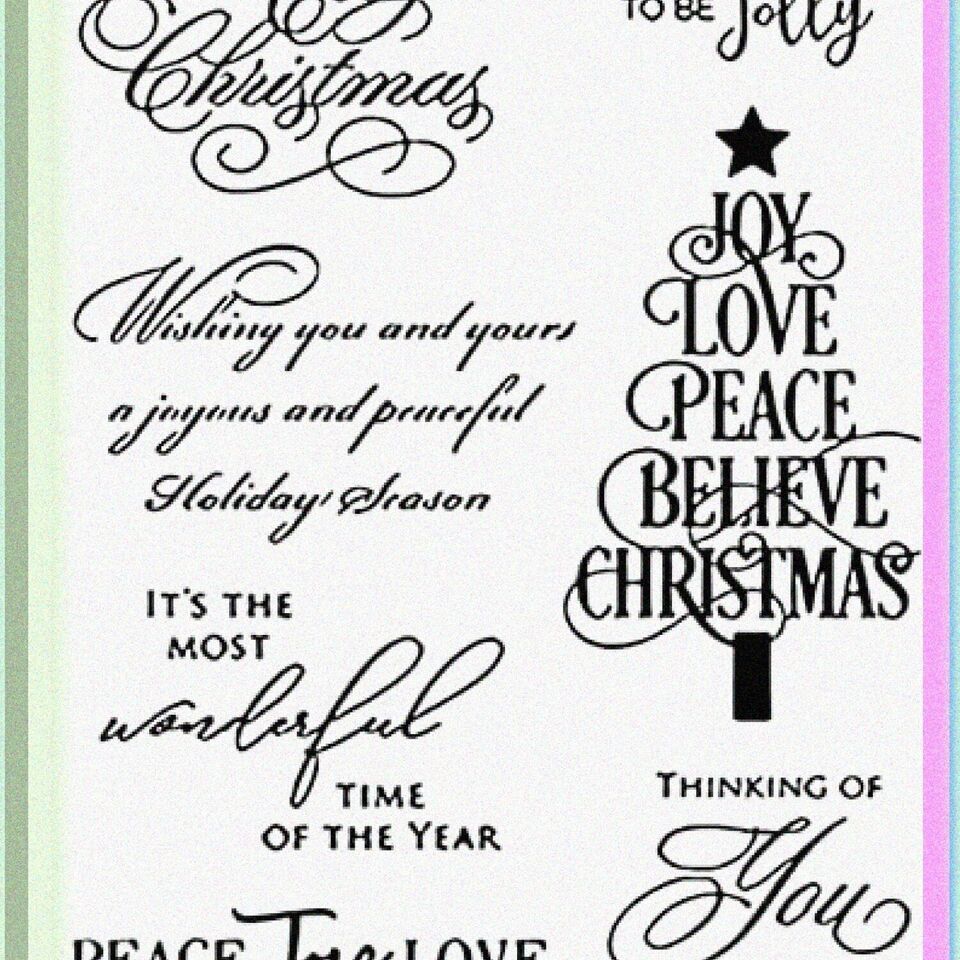 Christmas
TO BE Jolly
JOY
LOVE
PEACE
BELIEVE
CHRISTMAS
Wishing you and yours
a joyous and peaceful
Holiday Season
IT'S THE
MOST
wonderful
TIME
OF THE YEAR
THINKING OF
You
PEACE Joy LOVE